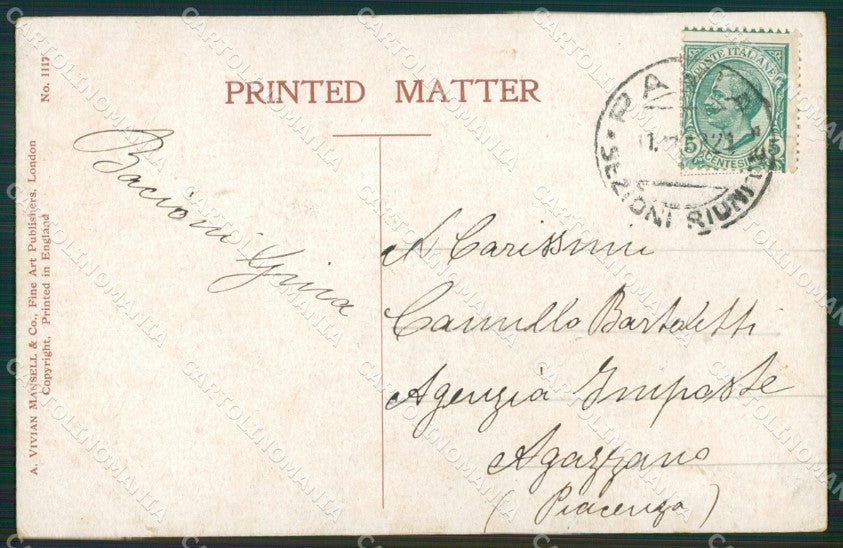 No. 1117
A. VIVIAN MANSELL & CO., Fine Art Publishers, London
Copyright, Printed in England
PRINTED MATTER
POSTE ITALIANE
5 5
CENTESIMI
PARMA
SEZIONI RIUNITE
Bacioni
A Carissimi
Camillo Bartoletti
Agenzia Imposte
Agazzano
(Piacenza)
CARTOLINOMANIA